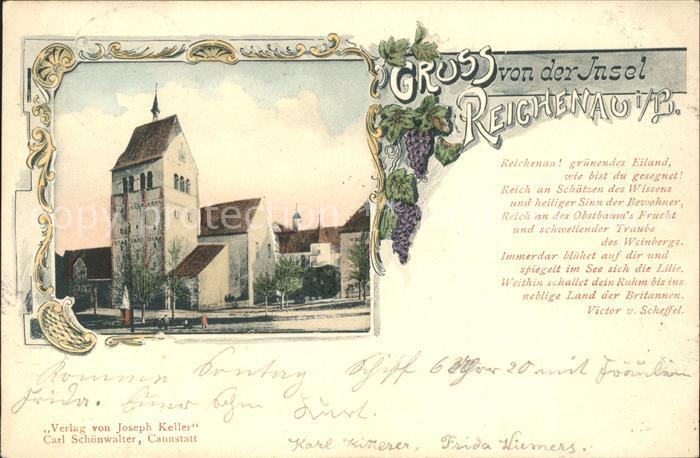 GRUSS von der Insel
REICHENAU i/B.
Reichenau! grünendes Eiland,
wie bist du gesegnet!
Reich an Schätzen des Wissens
und heiliger Sinn der Bewohner,
Reich an des Obstbaum's Frucht
und schwellender Traube
des Weinbergs.
Immerdar blühet auf dir und
spiegelt im See sich die Lilie.
Weithin schallet dein Ruhm bis ins
neblige Land der Britannen.
Victor v. Scheffel.
Kommen Sonntag Schiff 6 Uhr 20 mit Fräulein
Frida. Karl.
„Verlag von Joseph Keller"
Carl Schönwalter, Cannstatt
Karl Kitterer, Frida Wiemers.